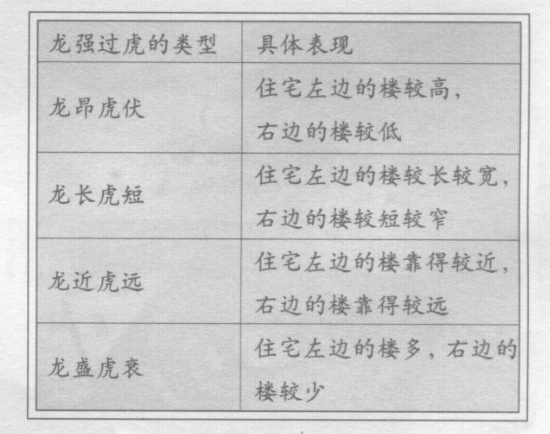 龙强过虎的类型 具体表现
龙昂虎伏 住宅左边的楼较高，
右边的楼较低
龙长虎短 住宅左边的楼较长较宽，
右边的楼较短较窄
龙近虎远 住宅左边的楼靠得较近，
右边的楼靠得较远
龙盛虎衰 住宅左边的楼多，右边的
楼较少